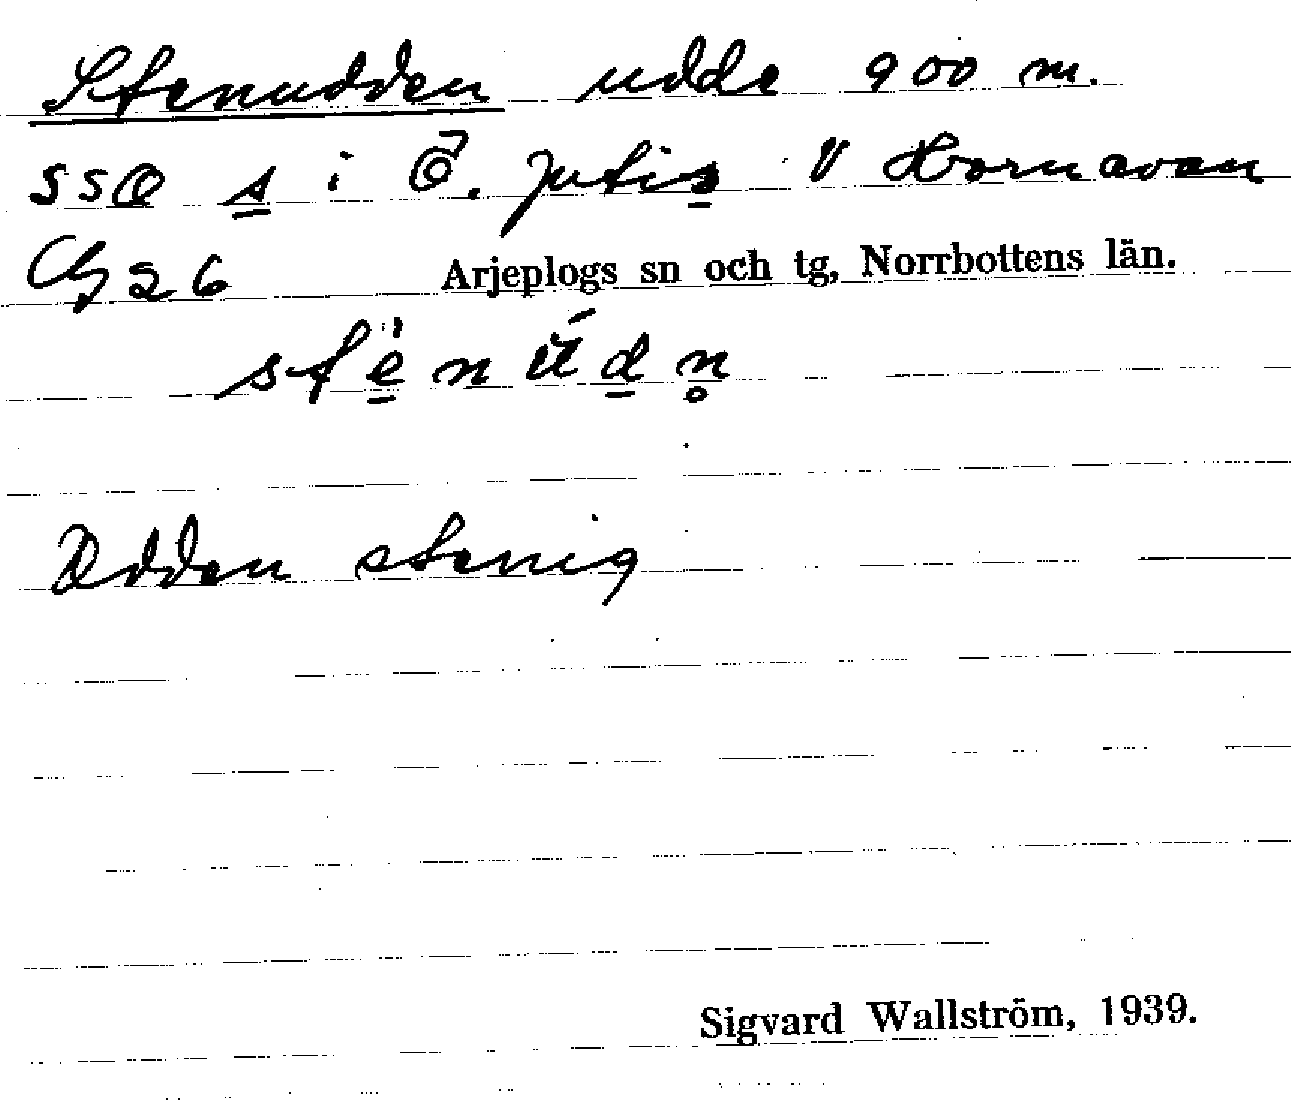 Stenudden udde 900 m.
SSO s i Ö. Jutis V Hornavan
Cg 26 Arjeplogs sn och tg, Norrbottens län.
stenudn
Udden stenig
Sigvard Wallström, 1939.